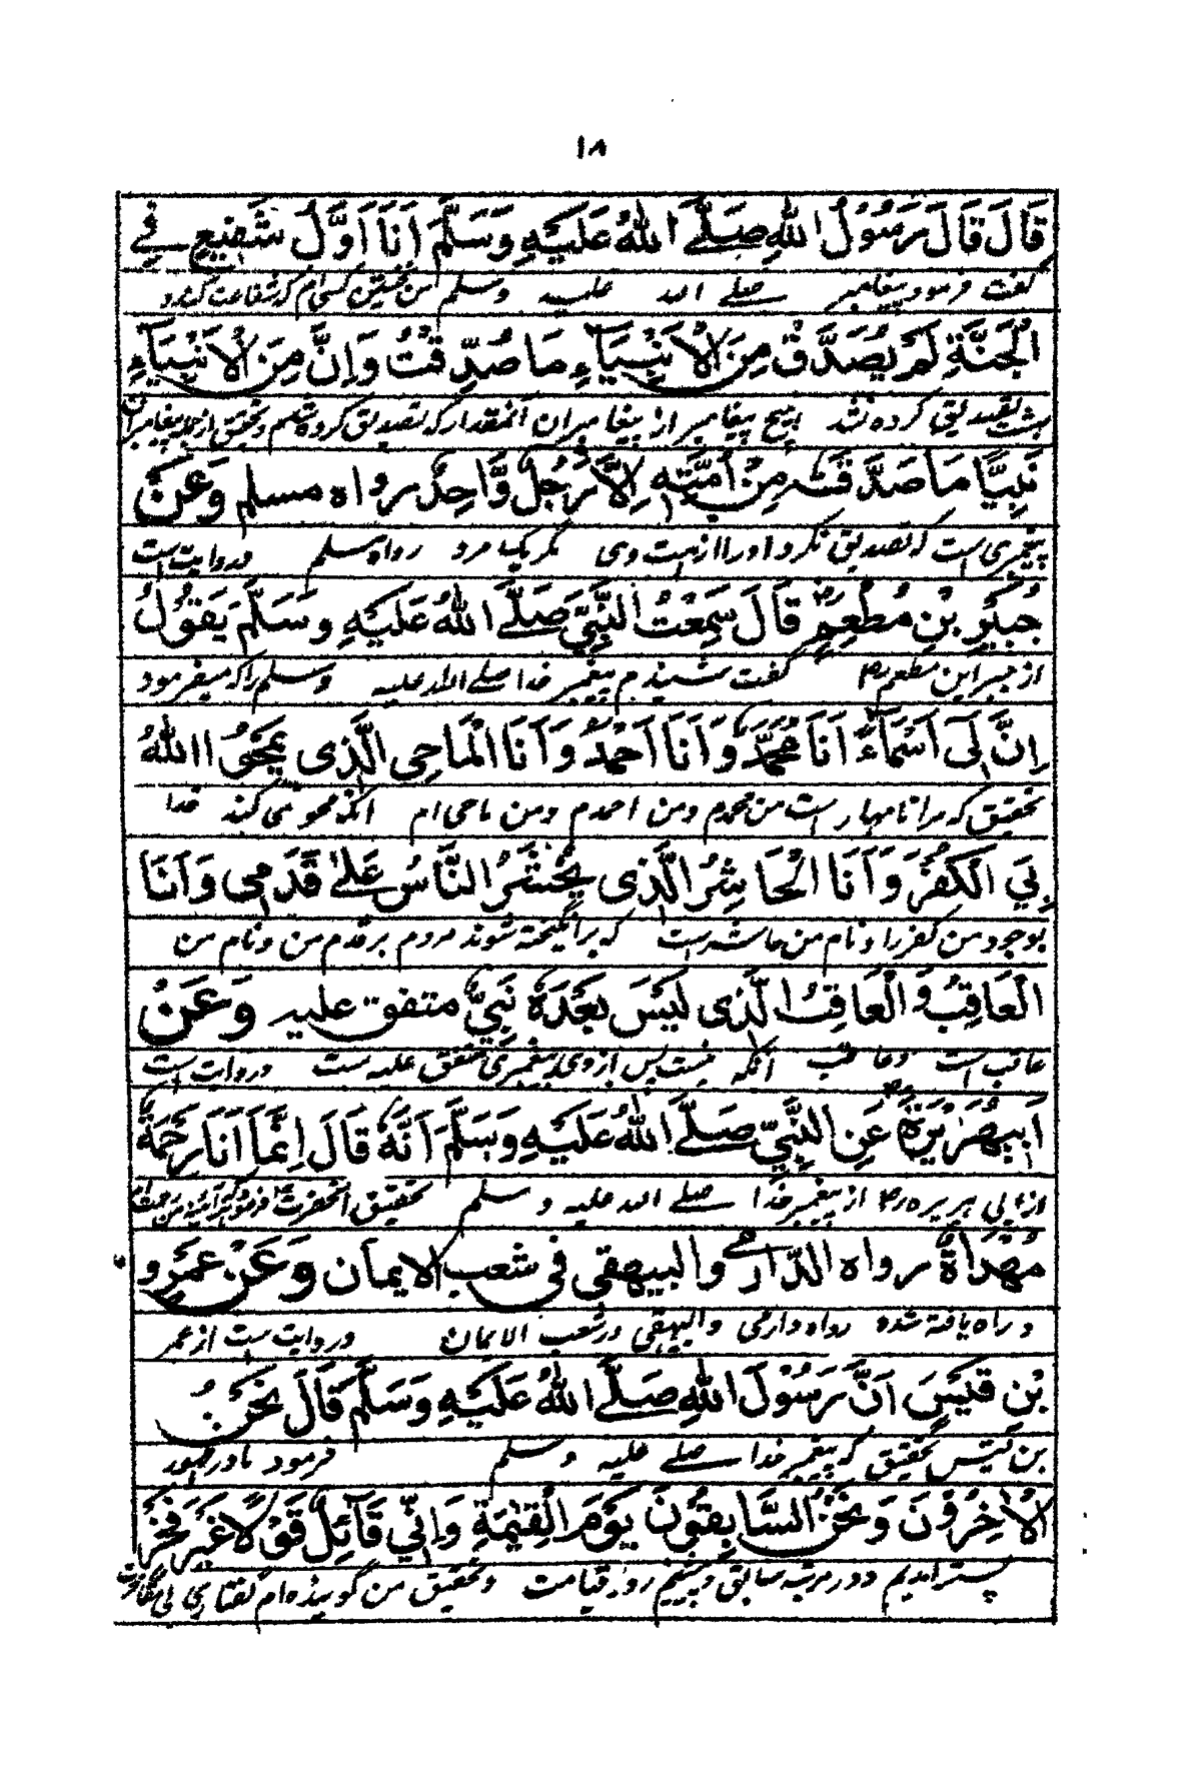 ۱۸
قَالَ قَالَ رَسُوْلُ اللهِ صَلَّے اللهُ عَلَيْهِ وَسَلَّمَ اَنَا اَوَّلُ شَفِيْعٍ فِے
گفت فرمود پیغامبر صلے اللہ علیہ وسلم من نخستین کسی ام که شفاعت کند در
الْجَنَّةِ لَمْ يُصَدَّقْ مِنَ الْاَنْبِيَآءِ مَا صُدِّقْتُ وَاِنَّ مِنَ الْاَنْبِيَآءِ
بهشت تصدیق کرده نشد هیچ پیغامبر از پیغامبران آنمقدار که تصدیق کرده شدم وتحقیق از جمله پیغامبران
نَبِيًّا مَا صَدَّقَهٗ مِنْ اُمَّتِهٖ اِلَّا رَجُلٌ وَّاحِدٌ رواه مسلم وَعَنْ
پیغمبری است که تصدیق نکرد اورا از امت وی مگر یک مرد رواه مسلم وروایت است
جُبَيْرِ بْنِ مُطْعِمٍ قَالَ سَمِعْتُ النَّبِيَّ صَلَّے اللهُ عَلَيْهِ وَسَلَّمَ يَقُوْلُ
از جبیر ابن مطعم گفت شنیدم پیغمبر خدا صلے الله علیه وسلم را که میفرمود
اِنَّ لِیْ اَسْمَآءً اَنَا مُحَمَّدٌ وَاَنَا اَحْمَدُ وَاَنَا الْمَاحِی الَّذِی يَمْحُوْ اللهُ
تحقیق که مرا نامها است من محمدم ومن احمدم ومن ماحی ام آنکه محو می کند خدا
بِیَ الْكُفْرَ وَاَنَا الْحَاشِرُ الَّذِی يُحْشَرُ النَّاسُ عَلٰی قَدَمِی وَاَنَا
بوجود من کفر را ونام من حاشر است که برانگیخته شوند مردم بر قدم من ونام من
الْعَاقِبُ وَالْعَاقِبُ الَّذِی لَيْسَ بَعْدَهٗ نَبِیٌّ متفق علیه وَعَنْ
عاقب است وعاقب آنکه نیست پس از وی پیغمبری متفق علیه است وروایت است
اَبِیْهُرَيْرَةَ عَنِ النَّبِیِّ صَلَّے اللهُ عَلَيْهِ وَسَلَّمَ اَنَّهٗ قَالَ اِنَّمَا اَنَا رَحْمَةٌ
از ابی هریره از پیغمبر خدا صلے الله علیه وسلم تحقیق آنحضرت فرمود
مُهْدَاةٌ رواه الدّارمی والبیهقی فی شعب الایمان وَعَنْ عَمْرِو
وراه یافته شده رواه دارمی والبیهقی در شعب الایمان وروایت است از عمر
بْنِ قَيْسٍ اَنَّ رَسُوْلَ اللهِ صَلَّے اللهُ عَلَيْهِ وَسَلَّمَ قَالَ نَحْنُ
بن قیس تحقیق که پیغمبر خدا صلے علیه وسلم فرمود ما در
الْاٰخِرُوْنَ وَنَحْنُ السَّابِقُوْنَ يَوْمَ الْقِيٰمَةِ وَاِنِّی قَآئِلٌ قَوْلًا غَيْرَ فَخْرٍ
پستر آمدیم ودر مرتبه سابق وپیشیم روز قیامت وتحقیق من گوینده ام گفتاری بی